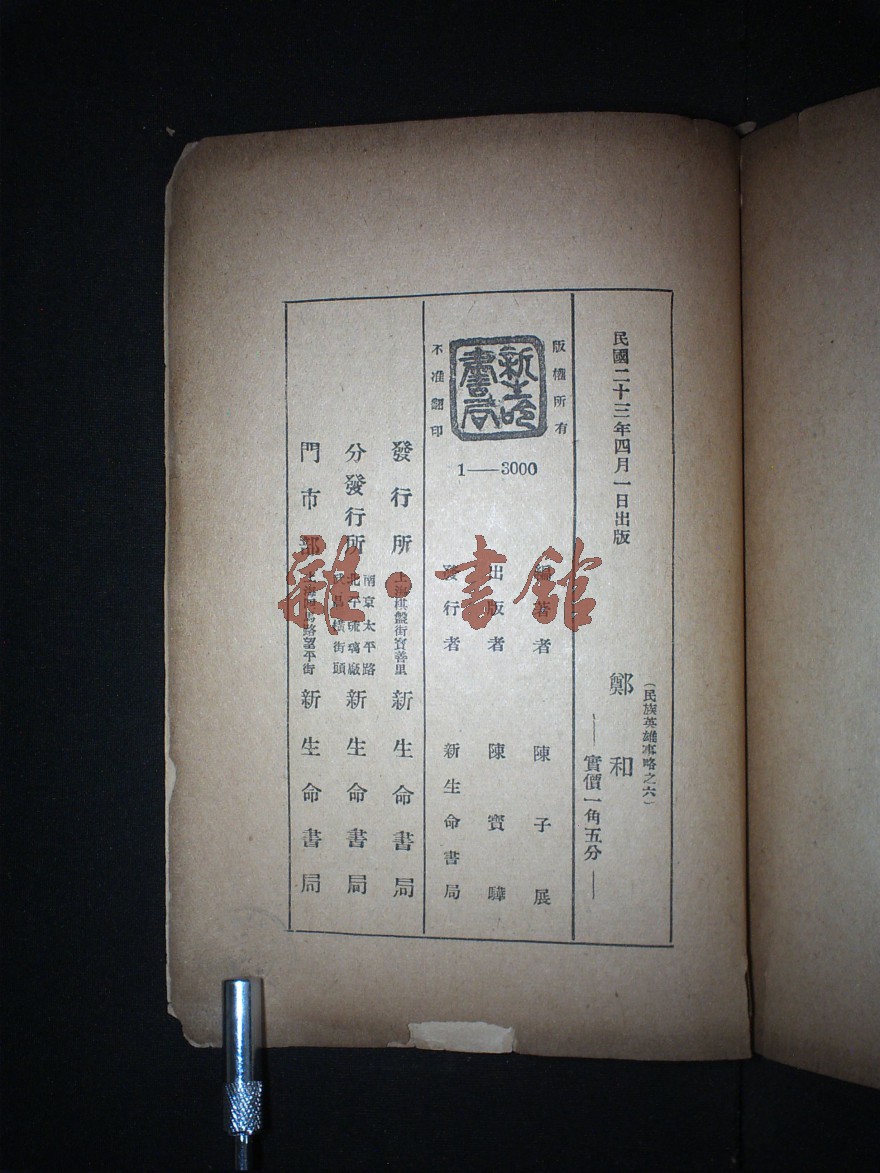 民國二十三年四月一日出版
（民族英雄事略之六）
鄭和
——實價一角五分——
版權所有
新生命書局
不准翻印
1——3000
編著者 陳子展
出版者 陳寶驊
發行者 新生命書局
發行所 上海棋盤街寶善里 新生命書局
分發行所 南京太平路
北平琉璃廠
武昌橫街頭
新生命書局
門市部 上海四馬路望平街 新生命書局
雜·書館